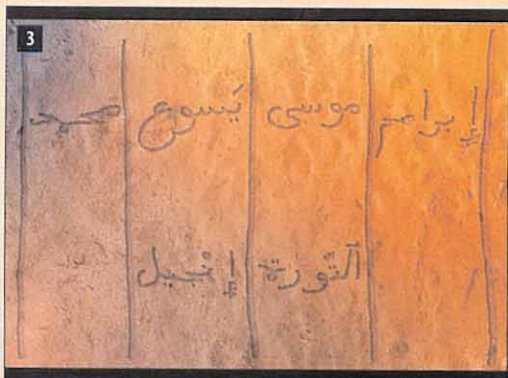 3
إبراهم موسى يَسوع محمد
التّورة إنجيل